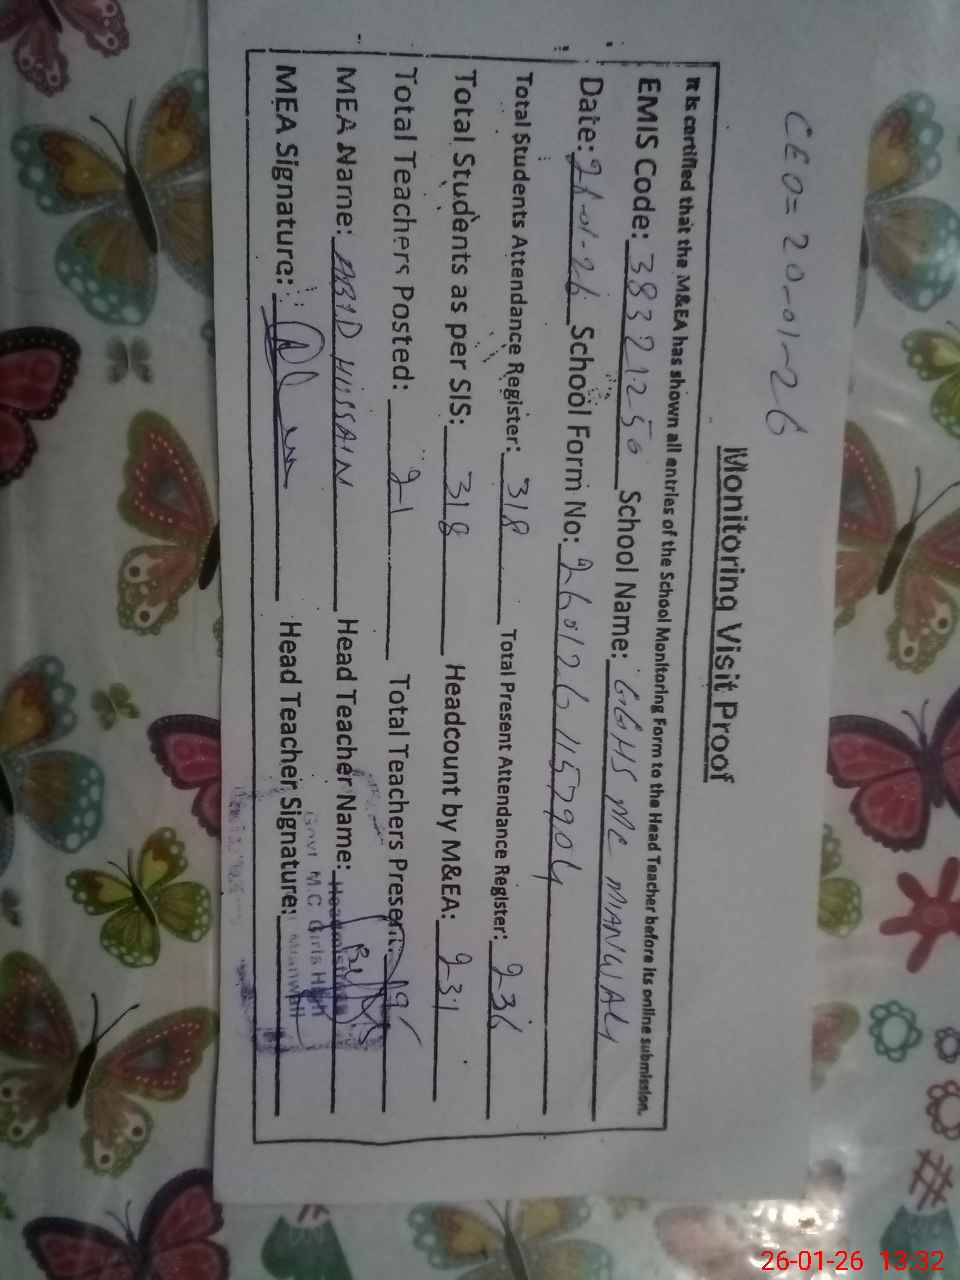 CEO= 20-01-26
Monitoring Visit Proof
It is certified that the M&EA has shown all entries of the School Monitoring Form to the Head Teacher before its online submission.
EMIS Code: 38321250 School Name: GGHS MC MIANWALI
Date: 26-01-26 School Form No: 2601261157904
Total Students Attendance Register: 318 Total Present Attendance Register: 236
Total Students as per SIS: 318 Headcount by M&EA: 231
Total Teachers Posted: 21 Total Teachers Present: 19
MEA Name: ABID HUSSAIN Head Teacher Name: Headmistress
Govt M.C Girls High
MEA Signature: Head Teacher Signature: Mianwali
26-01-26 13:32